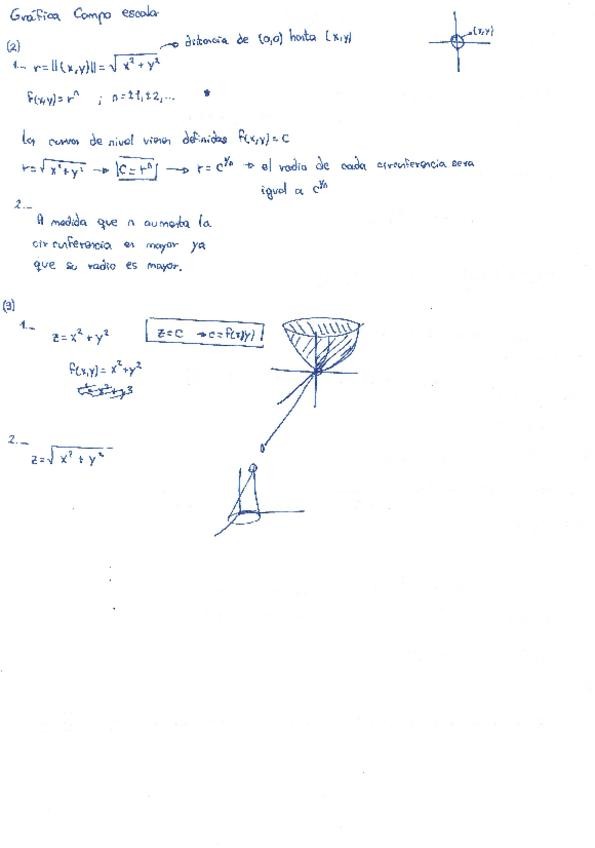 Gráfica Campo escalar
(2)
1.- r = ||(x,y)|| = √x² + y² → distancia de (0,0) hasta (x,y)
(x,y)
f(x,y) = rⁿ ; n = ±1, ±2, ...
Las curvas de nivel vienen definidas f(x,y) = C
r = √x² + y² → C = rⁿ → r = C^1/n → el radio de cada circunferencia sera
igual a C^1/n
2.-
A medida que n aumenta la
circunferencia es mayor ya
que su radio es mayor.
(3)
1.-
z = x² + y²
z = C → c = f(x,y)
f(x,y) = x² + y²
2.-
z = √x² + y²